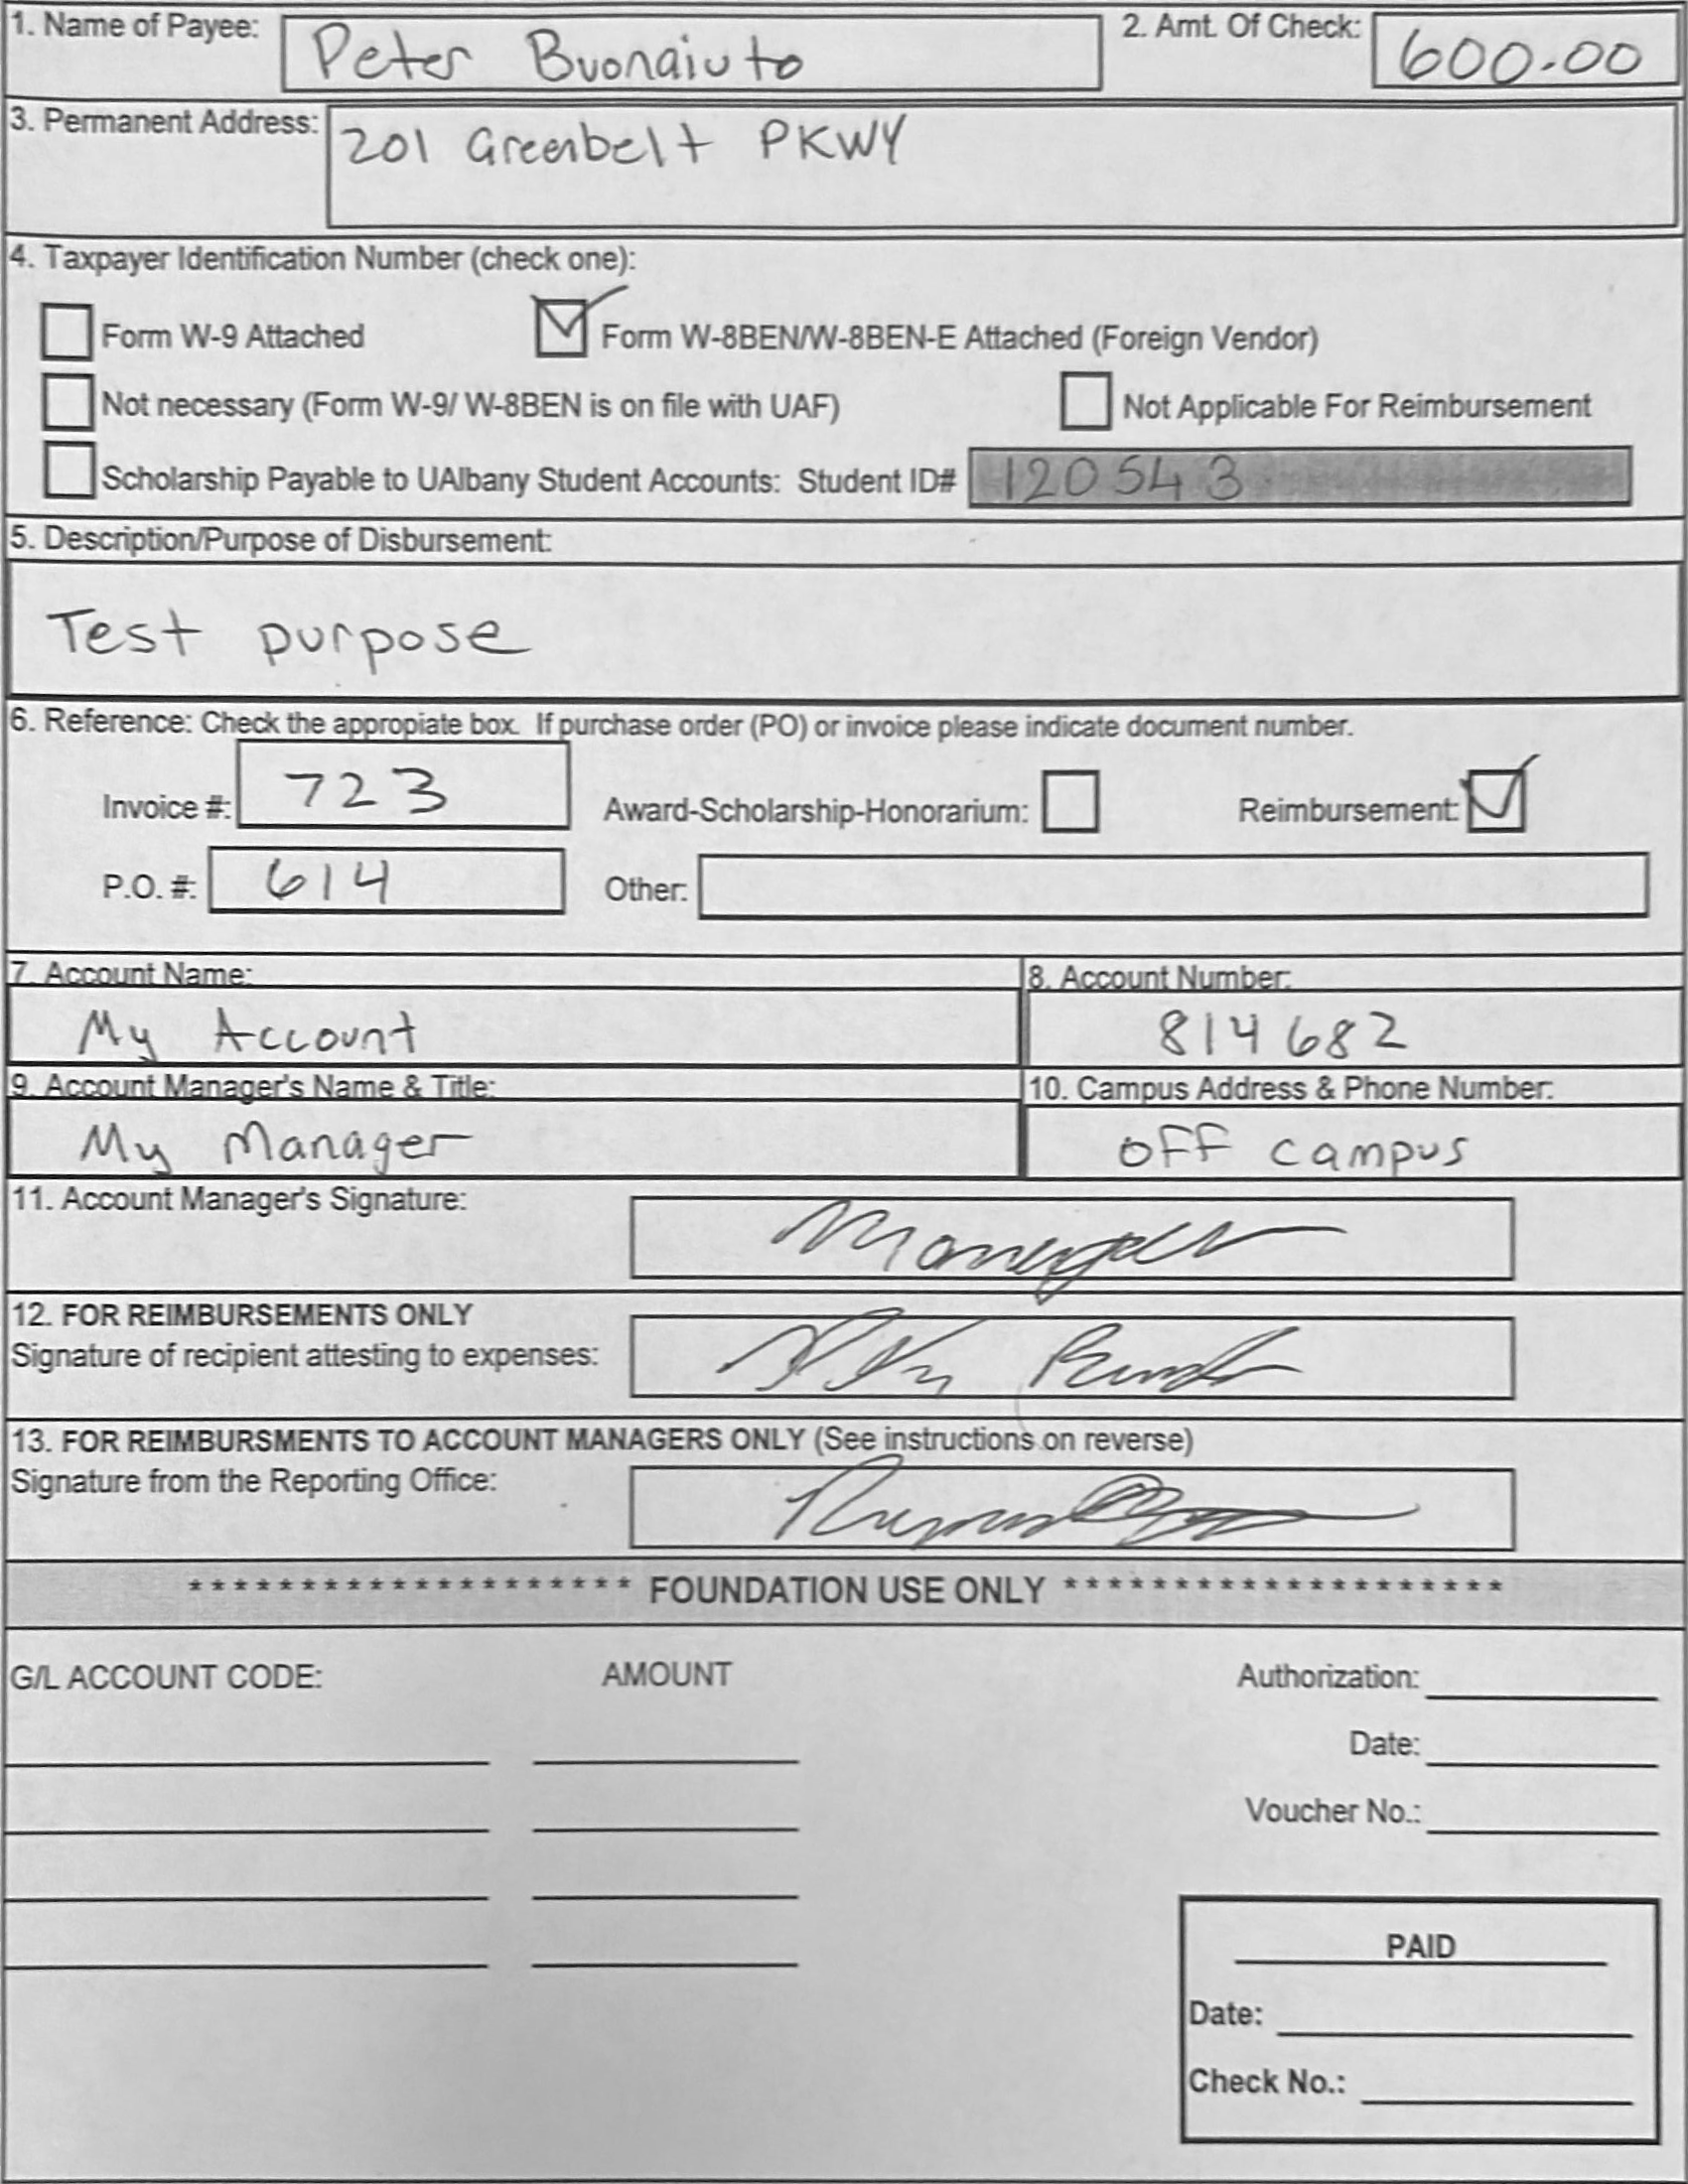 1. Name of Payee: Peter Buonaiuto 2. Amt. Of Check: 600.00
3. Permanent Address: 201 Greenbelt PKWY
4. Taxpayer Identification Number (check one):
Form W-9 Attached Form W-8BEN/W-8BEN-E Attached (Foreign Vendor)
Not necessary (Form W-9/ W-8BEN is on file with UAF) Not Applicable For Reimbursement
Scholarship Payable to UAlbany Student Accounts: Student ID# 120543
5. Description/Purpose of Disbursement:
Test purpose
6. Reference: Check the appropiate box. If purchase order (PO) or invoice please indicate document number.
Invoice #: 723 Award-Scholarship-Honorarium: Reimbursement:
P.O. #: 614 Other:
7. Account Name: 8. Account Number:
My Account 814682
9. Account Manager's Name & Title: 10. Campus Address & Phone Number:
My Manager off campus
11. Account Manager's Signature: Manager
12. FOR REIMBURSEMENTS ONLY
Signature of recipient attesting to expenses:
13. FOR REIMBURSMENTS TO ACCOUNT MANAGERS ONLY (See instructions on reverse)
Signature from the Reporting Office:
* * * * * * * * * * * * * * * * * * * * FOUNDATION USE ONLY * * * * * * * * * * * * * * * * * * * *
G/L ACCOUNT CODE: AMOUNT Authorization:
Date:
Voucher No.:
PAID
Date:
Check No.: